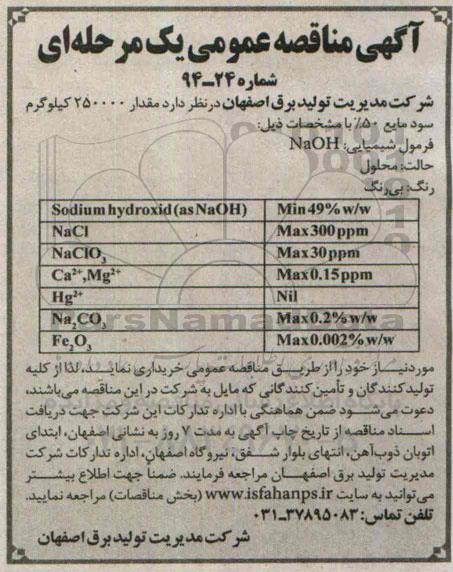 آگهی مناقصه عمومی یک مرحله‌ای
شماره ۲۴-۹۴
شرکت مدیریت تولید برق اصفهان در نظر دارد مقدار ۲۵۰۰۰۰ کیلوگرم
سود مایع ۵۰٪ با مشخصات ذیل:
فرمول شیمیایی: NaOH
حالت: محلول
رنگ: بی‌رنگ
Sodium hydroxid (as NaOH) Min 49% w/w
NaCl Max 300 ppm
NaClO₃ Max 30 ppm
Ca²⁺,Mg²⁺ Max 0.15 ppm
Hg²⁺ Nil
Na₂CO₃ Max 0.2% w/w
Fe₂O₃ Max 0.002% w/w
مورد نیاز خود را از طریق مناقصه عمومی خریداری نماید، لذا از کلیه
تولیدکنندگان و تأمین‌کنندگانی که مایل به شرکت در این مناقصه می‌باشند،
دعوت می‌شود ضمن هماهنگی با اداره تدارکات این شرکت جهت دریافت
اسناد مناقصه از تاریخ چاپ آگهی به مدت ۷ روز به نشانی اصفهان، ابتدای
اتوبان ذوب‌آهن، انتهای بلوار شفق، نیروگاه اصفهان، اداره تدارکات شرکت
مدیریت تولید برق اصفهان مراجعه فرمایند. ضمناً جهت اطلاع بیشتر
می‌توانید به سایت www.isfahanps.ir (بخش مناقصات) مراجعه نمایید.
تلفن تماس: ۳۷۸۹۵۰۸۳-۰۳۱
شرکت مدیریت تولید برق اصفهان